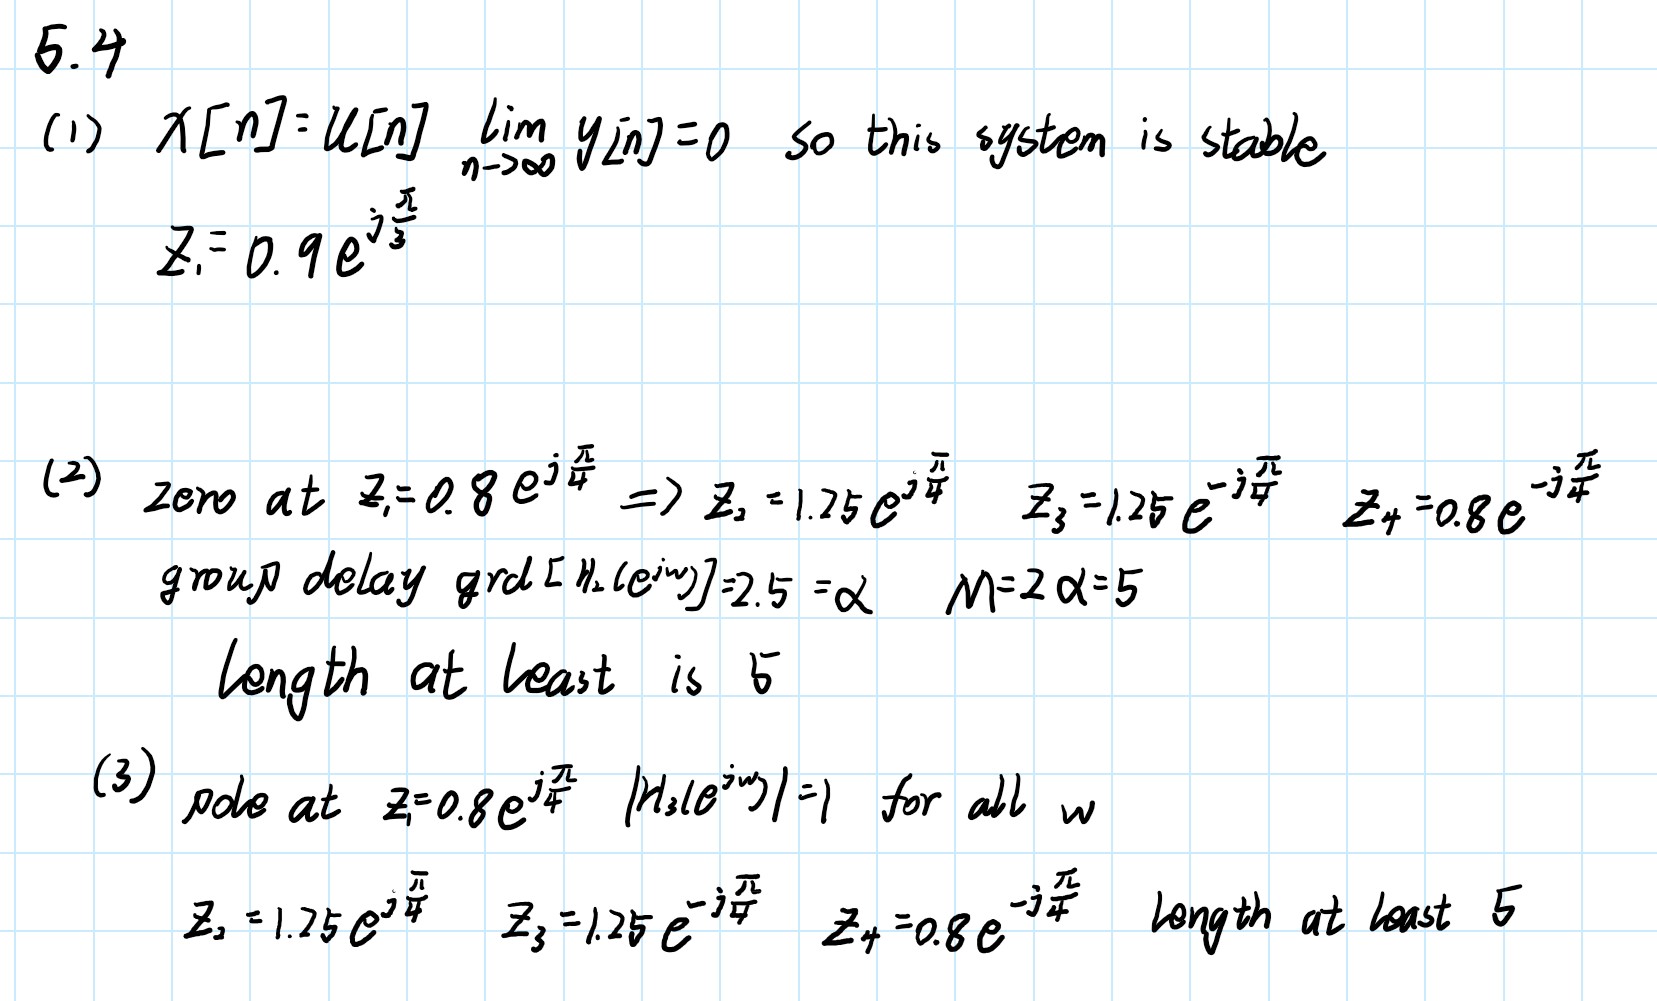 5.4
(1) x[n]=u[n] lim n->∞ y[n]=0 so this system is stable
z₁=0.9e^{jπ/3}
(2) zero at z₁=0.8e^{jπ/4} => z₂=1.25e^{jπ/4} z₃=1.25e^{-jπ/4} z₄=0.8e^{-jπ/4}
group delay grd[H₂(e^{jw})]=2.5=α M=2α=5
length at least is 5
(3) pole at z₁=0.8e^{jπ/4} |H₃(e^{jw})|=1 for all w
z₂=1.25e^{jπ/4} z₃=1.25e^{-jπ/4} z₄=0.8e^{-jπ/4} length at least 5